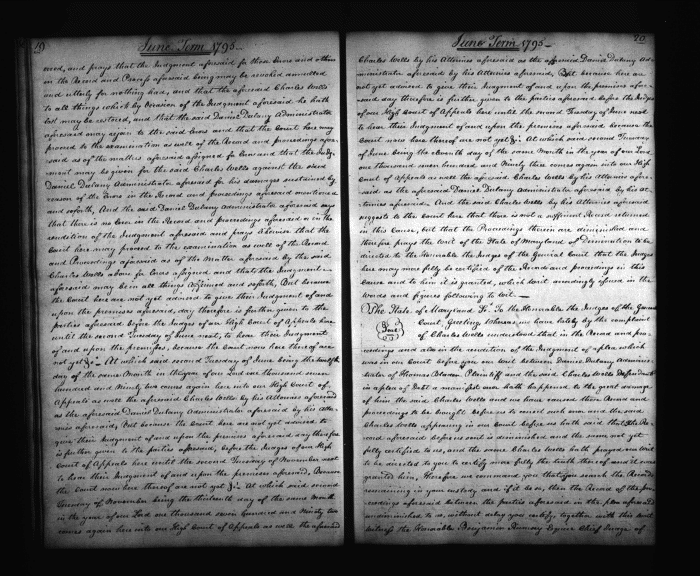 19
June Term 1795
need, and prays that the Judgment aforesaid for those Errors and others
in the Record and Process aforesaid being may be revoked annulled
and utterly for nothing had, and that the aforesaid Charles Wells
to all things which by Occasion of the Judgment aforesaid he hath
lost may be restored, and that the said Daniel Dulany Administrator
aforesaid may rejoin to the said Errors and that the Court here may
proceed to the examination as well of the Record and proceedings afore-
said as of the matters aforesaid assigned for Error and that the Judg-
ment may be given for the said Charles Wells against the said
Daniel Dulany Administrator aforesaid for his damages sustained by
reason of the Errors in the Record and proceedings aforesaid mentioned
and soforth, And the said Daniel Dulany Administrator aforesaid says
that there is no Error in the Record and proceedings aforesaid or in the
rendition of the Judgment aforesaid and prays likewise that the
Court here may proceed to the examination as well of the Record
and Proceedings aforesaid as of the Matter aforesaid by the said
Charles Wells above for Error assigned and that the Judgment
aforesaid may be in all things Affirmed and soforth, But because
the Court here are not yet advised to give their Judgment of and
upon the premises aforesaid, day therefore is further given to the
parties aforesaid before the Judges of our High Court of Appeals here
until the second Tuesday of June next, to hear their Judgment
of and upon the premises, because the Court now here thereof are
not yet &c. At which said second Tuesday of June being the twelfth
day of the same Month in the year of our Lord one thousand seven
hundred and Ninety two comes again here into our High Court of
Appeals as well the aforesaid Charles Wells by his Attornies aforesaid
as the aforesaid Daniel Dulany Administrator aforesaid by his Attor-
nies aforesaid, But because the Court here are not yet advised to
give their Judgment of and upon the premises aforesaid day therefore
is further given to the parties aforesaid, before the Judges of our High
Court of Appeals here until the second Tuesday of November next
to hear their Judgment of and upon the premises aforesaid, Because
the Court now here thereof are not yet &c. At which said second
Tuesday of November being the thirteenth day of the same Month
in the year of our Lord one thousand seven hundred and Ninety two
comes again here into our High Court of Appeals as well the aforesaid
20
June Term 1795
Charles Wells by his Attornies aforesaid as the aforesaid Daniel Dulany Ad-
ministrator aforesaid by his Attornies aforesaid, But because here are
not yet advised to give their Judgment of and upon the premises afore-
said day therefore is further given to the parties aforesaid before the Judges
of our High Court of Appeals here until the second Tuesday of June next
to hear their Judgment of and upon the premises aforesaid because the
Court now here thereof are not yet &c. At which said second Tuesday
of June being the eleventh day of the same Month in the year of our Lord
one thousand seven hundred and Ninety three comes again into our High
Court of Appeals as well the aforesaid Charles Wells by his Attornies afore-
said as the aforesaid Daniel Dulany Administrator aforesaid by his at-
tornies aforesaid. And the said Charles Wells by his Attornies aforesaid
suggests to the Court here that there is not a sufficient Record returned
in this Cause, but that the Proceedings therein are diminished and
therefore prays the writ of the State of Maryland of Diminution to be
directed to the Honorable the Judges of the General Court that the Judges
here may more fully be certified of the Records and proceedings in this
Cause and to him it is granted, which writ accordingly issued in the
words and figures following to wit.
The State of Maryland Ss. To the Honorable the Judges of the General
Seal Court Greeting Whereas we have lately by the complaint
of Charles Wells understood that in the Record and pro-
ceedings and also in the rendition of the Judgment of a plea which
was in our Court before you our writ between Daniel Dulany adminis-
trator of Thomas Bladen Plaintiff and the said Charles Wells Defendant
in a plea of Debt a manifest error hath happened to the great damage
of him the said Charles Wells and we have caused those Record and
proceedings to be brought before us to correct such error and the said
Charles Wells appearing in our Court before us hath said that the Re-
cord aforesaid before us sent is diminished and the same not yet
fully certified to us, and the same Charles Wells hath prayed our writ
to be directed to you to certify more fully the truth thereof and it was
granted him, Therefore we command you that you search the Records
remaining in your custody and if it be so, then the Record of the pro-
ceedings aforesaid between the parties aforesaid in the plea aforesaid
undiminished to us, without delay you certify, together with this writ
witness the Honorable Benjamin Rumsey Esquire Chief Judge of